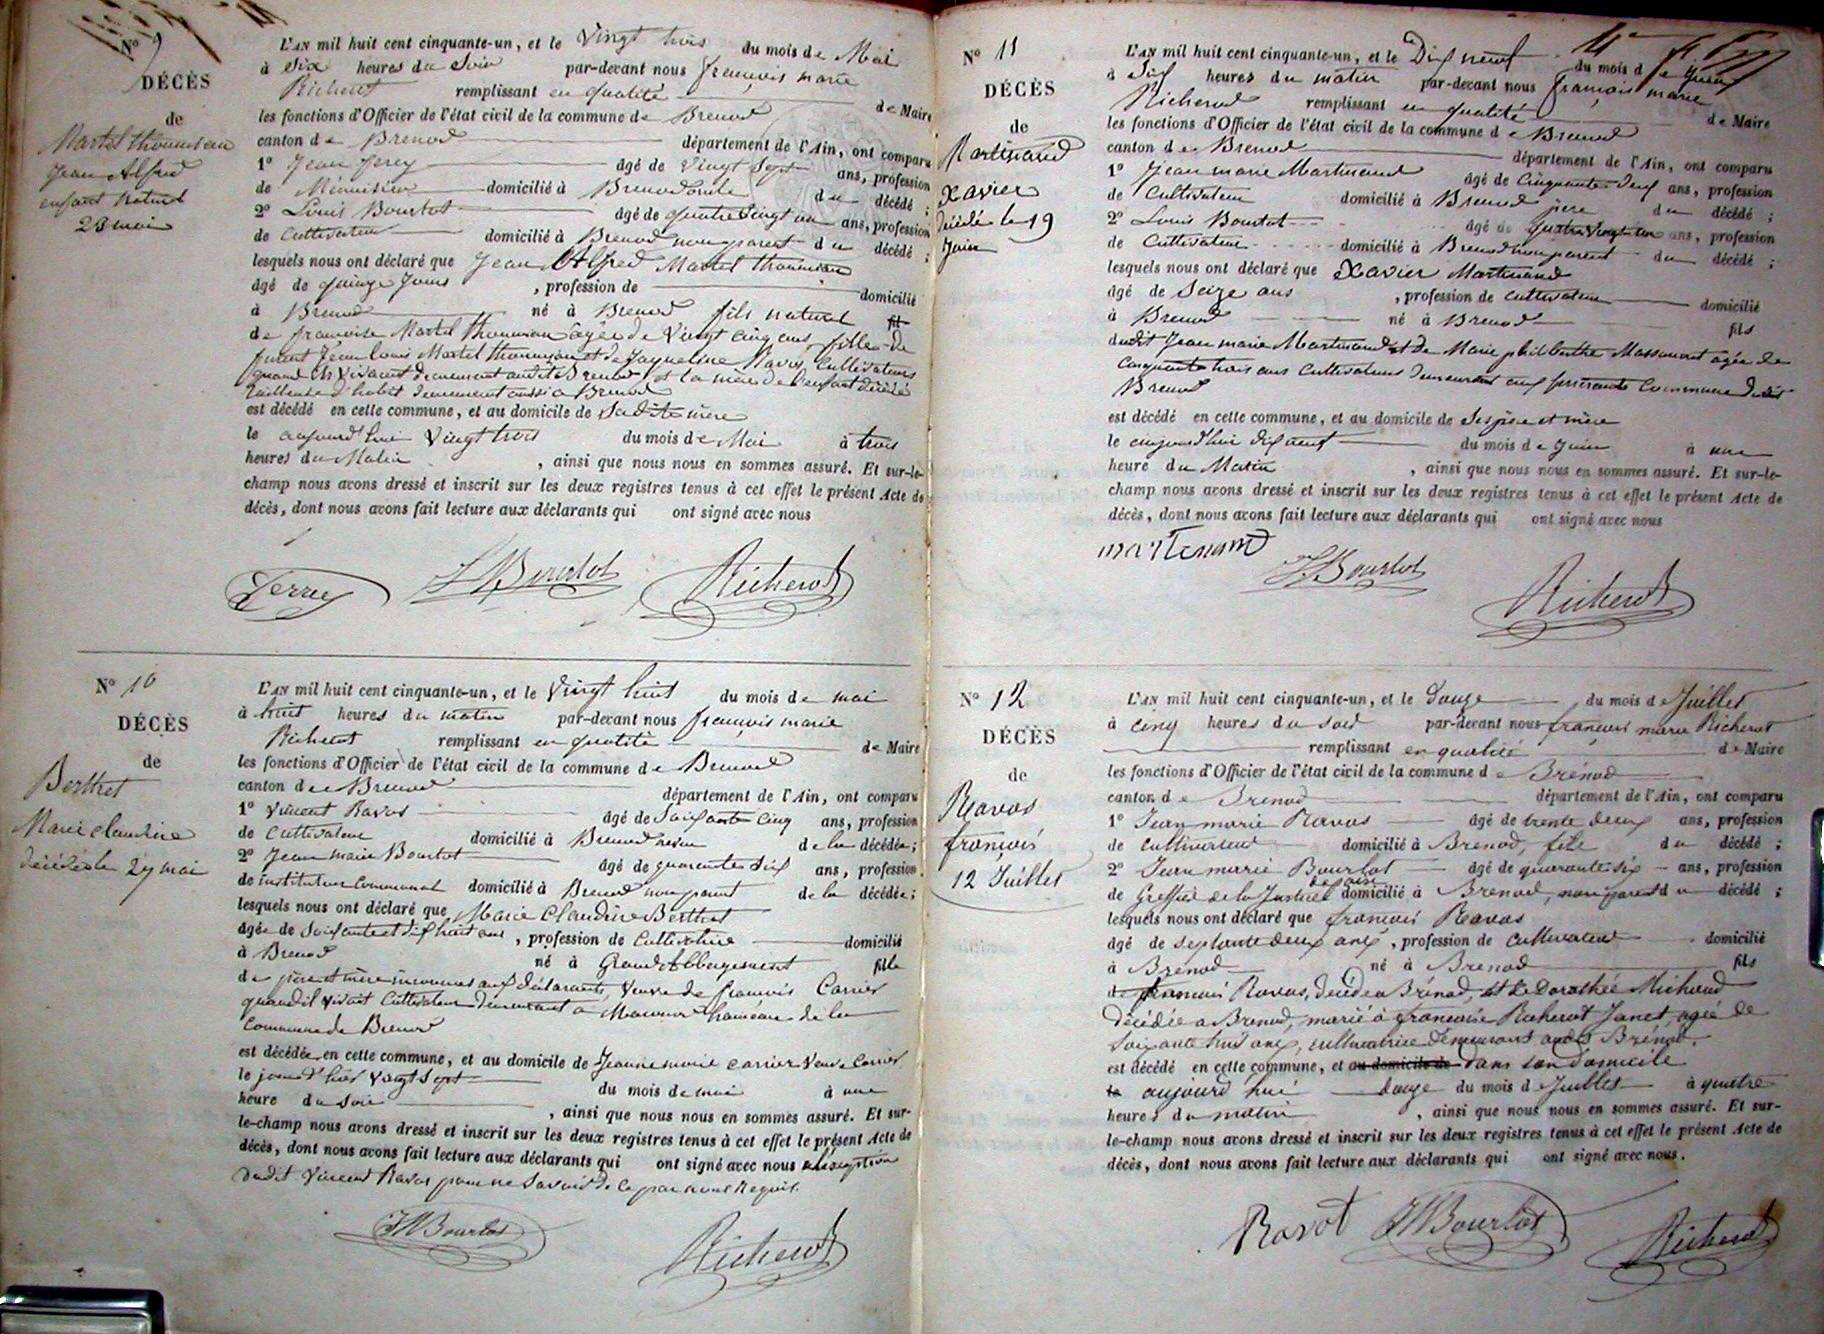 N° 9
DÉCÈS
de
Martel thounian
Jean Alfred
enfant naturel
23 mai
L'AN mil huit cent cinquante-un, et le Vingt trois du mois de Mai
à Six heures du Soir par-devant nous françois marie
Richerot remplissant en qualité de Maire
les fonctions d'Officier de l'état civil de la commune de Brenod
canton de Brenod département de l'Ain, ont comparu
1° Jean ferry âgé de Vingt Sept ans, profession
de Ménuisier domicilié à Brenod oncle du décédé ;
2° Louis Bourlot âgé de quatre Vingt un ans, profession
de Cultivateur domicilié à Brenod non parent du décédé ;
lesquels nous ont déclaré que Jean Alfred Martel thounian
âgé de quinze Jours , profession de domicilié
à Brenod né à Brenod fils naturel fil
de françoise Martel thounian âgée de Vingt cinq ans, fille de
furent Jean louis Martel thounian et de Jaqueline Ravot Cultivateurs
quand ils vivaient demeurant audit Brenod et la mère de l'enfant décédé
tailleuse d'habit demeurant aussi à Brenod
est décédé en cette commune, et au domicile de Sadite mère
le aujourd'hui Vingt trois du mois de Mai à trois
heures du Matin , ainsi que nous nous en sommes assuré. Et sur-le-
champ nous avons dressé et inscrit sur les deux registres tenus à cet effet le présent Acte de
décès, dont nous avons fait lecture aux déclarants qui ont signé avec nous
ferrey JL Bourlot Richerot
N° 10
DÉCÈS
de
Berthet
Marie claudine
décédée le 27 mai
L'AN mil huit cent cinquante-un, et le Vingt huit du mois de mai
à huit heures du matin par-devant nous françois marie
Richerot remplissant en qualité de Maire
les fonctions d'Officier de l'état civil de la commune de Brenod
canton de Brenod département de l'Ain, ont comparu
1° Vincent Ravot âgé de Soixante cinq ans, profession
de Cultivateur domicilié à Brenod neveu de la décédée ;
2° Jean marie Bourlot âgé de quarante Six ans, profession
de instituteur Communal domicilié à Brenod non parent de la décédée ;
lesquels nous ont déclaré que Marie Claudine Berthet
âgée de Soixante et dix huit ans , profession de Cultivatrice domicilié
à Brenod né à Grand Abbergement fille
de père et mère inconnus aux déclarants, Veuve de françois Carrier
quand il vivait Cultivateur demeurant à Macconod hameau de la
Commune de Brenod
est décédée en cette commune, et au domicile de Jeanne marie Carrier Veuve Carrier
le jour d'hier Vingt Sept du mois de mai à une
heure du Soir , ainsi que nous nous en sommes assuré. Et sur-
le-champ nous avons dressé et inscrit sur les deux registres tenus à cet effet le présent Acte de
décès, dont nous avons fait lecture aux déclarants qui ont signé avec nous à l'exception
dudit Vincent Ravot pour ne Savoir de ce par nous Requis.
JM Bourlot Richerot
N° 11
DÉCÈS
de
Martinand
Xavier
décédé le 19
Juin
L'AN mil huit cent cinquante-un, et le Dix neuf du mois de Juin
à Six heures du matin par-devant nous françois marie
Richerot remplissant en qualité de Maire
les fonctions d'Officier de l'état civil de la commune de Brenod
canton de Brenod département de l'Ain, ont comparu
1° Jean marie Martinand âgé de Cinquante Deux ans, profession
de Cultivateur domicilié à Brenod père du décédé ;
2° Louis Bourlot âgé de quatre Vingt un ans, profession
de Cultivateur domicilié à Brenod non parent du décédé ;
lesquels nous ont déclaré que Xavier Martinand
âgé de Seize ans , profession de Cultivateur domicilié
à Brenod né à Brenod fils
dudit Jean marie Martinand et de Marie philiberthe Massonnet agée de
Cinquante trois ans Cultivateurs demeurant Commune dudit
Brenod
est décédé en cette commune, et au domicile de Ses père et mère
le aujourd'hui dix neuf du mois de Juin à une
heure du Matin , ainsi que nous nous en sommes assuré. Et sur-le-
champ nous avons dressé et inscrit sur les deux registres tenus à cet effet le présent Acte de
décès, dont nous avons fait lecture aux déclarants qui ont signé avec nous
martinand JL Bourlot Richerot
N° 12
DÉCÈS
de
Ravot
françois
12 Juillet
L'AN mil huit cent cinquante-un, et le Douze du mois de Juillet
à cinq heures du soir par-devant nous françois marie Richerot
remplissant en qualité de Maire
les fonctions d'Officier de l'état civil de la commune de Brénod
canton de Brénod département de l'Ain, ont comparu
1° Jean marie Ravot âgé de trente deux ans, profession
de cultivateur domicilié à Brénod, fils du décédé ;
2° Jean marie Bourlot âgé de quarante six ans, profession
de Greffier de la Justice de paix domicilié à Brénod, non parent du décédé ;
lesquels nous ont déclaré que françois Ravot
âgé de septante deux ans , profession de Cultivateur domicilié
à Brénod né à Brénod fils
de françois Ravot, décédé à Brénod, et de Dorothée Michaud
décédée à Brenod, marié à françoise Richerot Janet, agée de
soixante huit ans, cultivatrice demeurant audit Brénod.
est décédé en cette commune, et au domicile de dans son domicile
le aujourd'hui douze du mois de Juillet à quatre
heures du matin , ainsi que nous nous en sommes assuré. Et sur-
le-champ nous avons dressé et inscrit sur les deux registres tenus à cet effet le présent Acte de
décès, dont nous avons fait lecture aux déclarants qui ont signé avec nous.
Ravot JM Bourlot Richerot